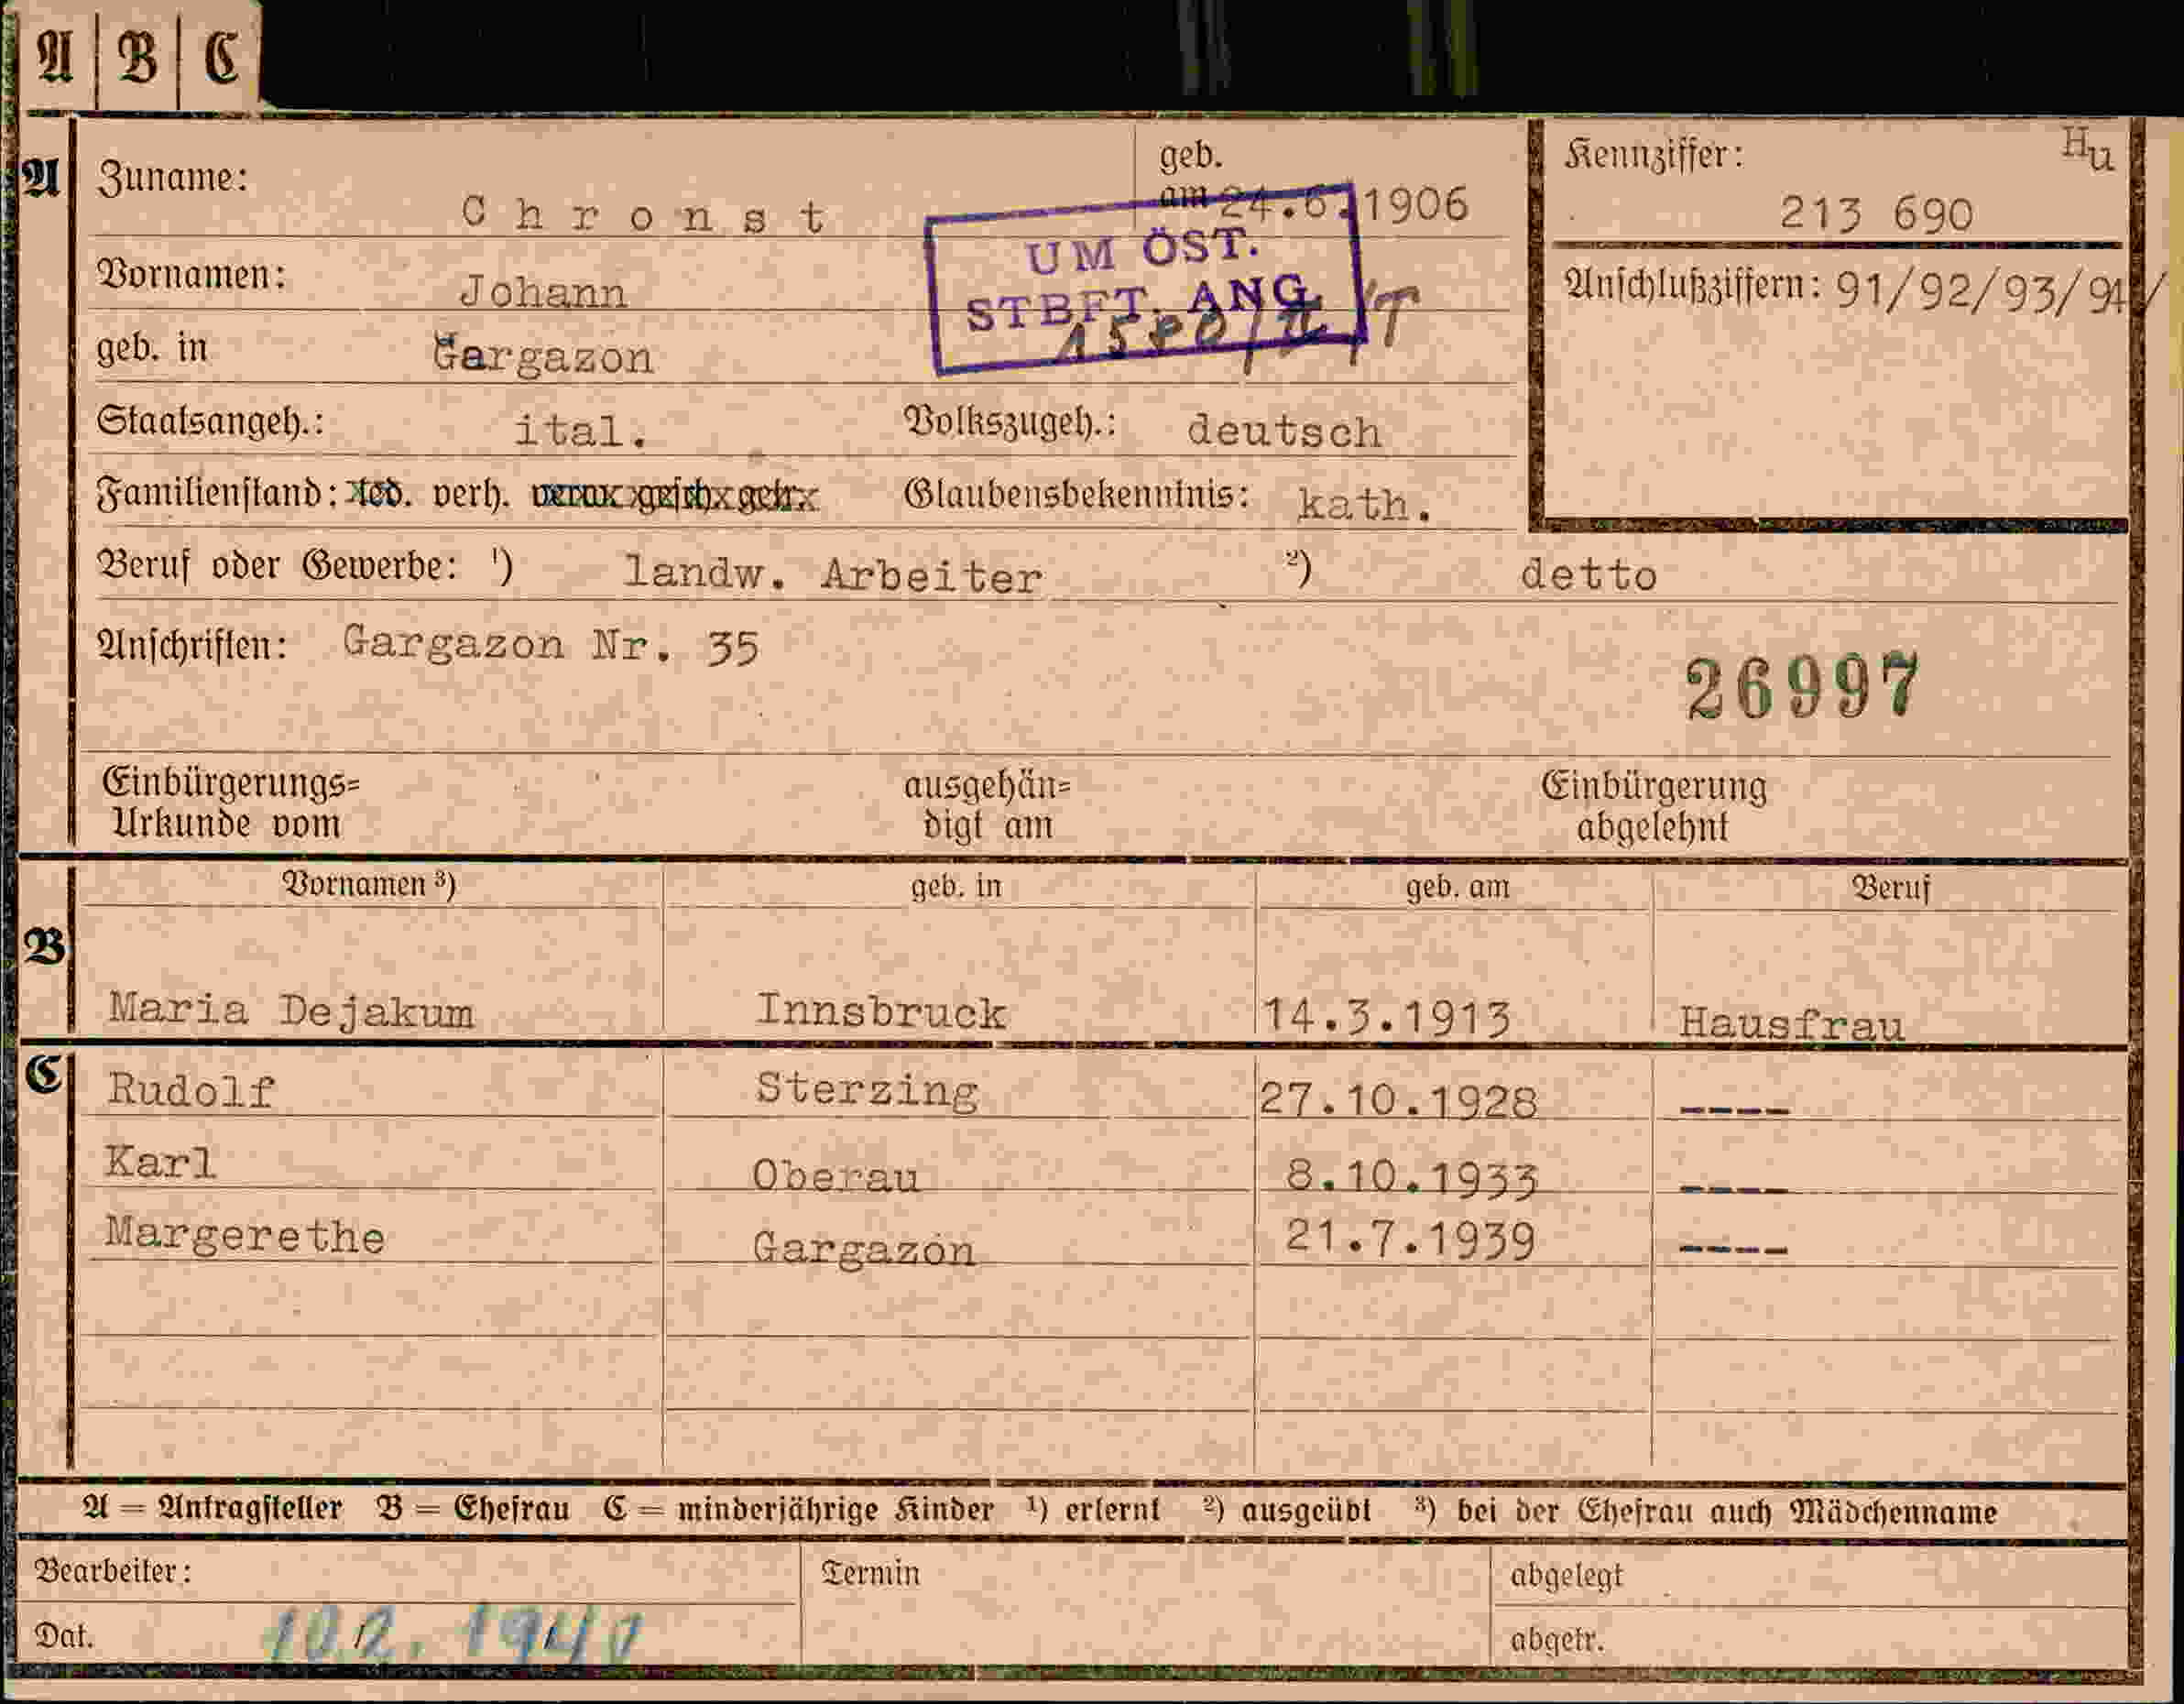 A B C
A Zuname: Chronst geb. am 24.6.1906
Kennziffer: Hu
213 690
Vornamen: Johann
UM ÖST.
STBFT. ANG.
Anschlußziffern: 91/92/93/94/
geb. in Gargazon
Staatsangeh.: ital. Volkszugeh.: deutsch
Familienstand: led. verh. verw. gesch. getr. Glaubensbekenntnis: kath.
Beruf oder Gewerbe: ¹) landw. Arbeiter ²) detto
Anschriften: Gargazon Nr. 35
26997
Einbürgerungs= ausgehän= Einbürgerung
Urkunde vom digt am abgelehnt
Vornamen ³) geb. in geb. am Beruf
B
Maria Dejakum Innsbruck 14.3.1913 Hausfrau
C Rudolf Sterzing 27.10.1928 ----
Karl Oberau 8.10.1933 ----
Margerethe Gargazon 21.7.1939 ----
A = Antragsteller B = Ehefrau C = minderjährige Kinder ¹) erlernt ²) ausgeübt ³) bei der Ehefrau auch Mädchenname
Bearbeiter: Termin abgelegt
Dat. abgetr.